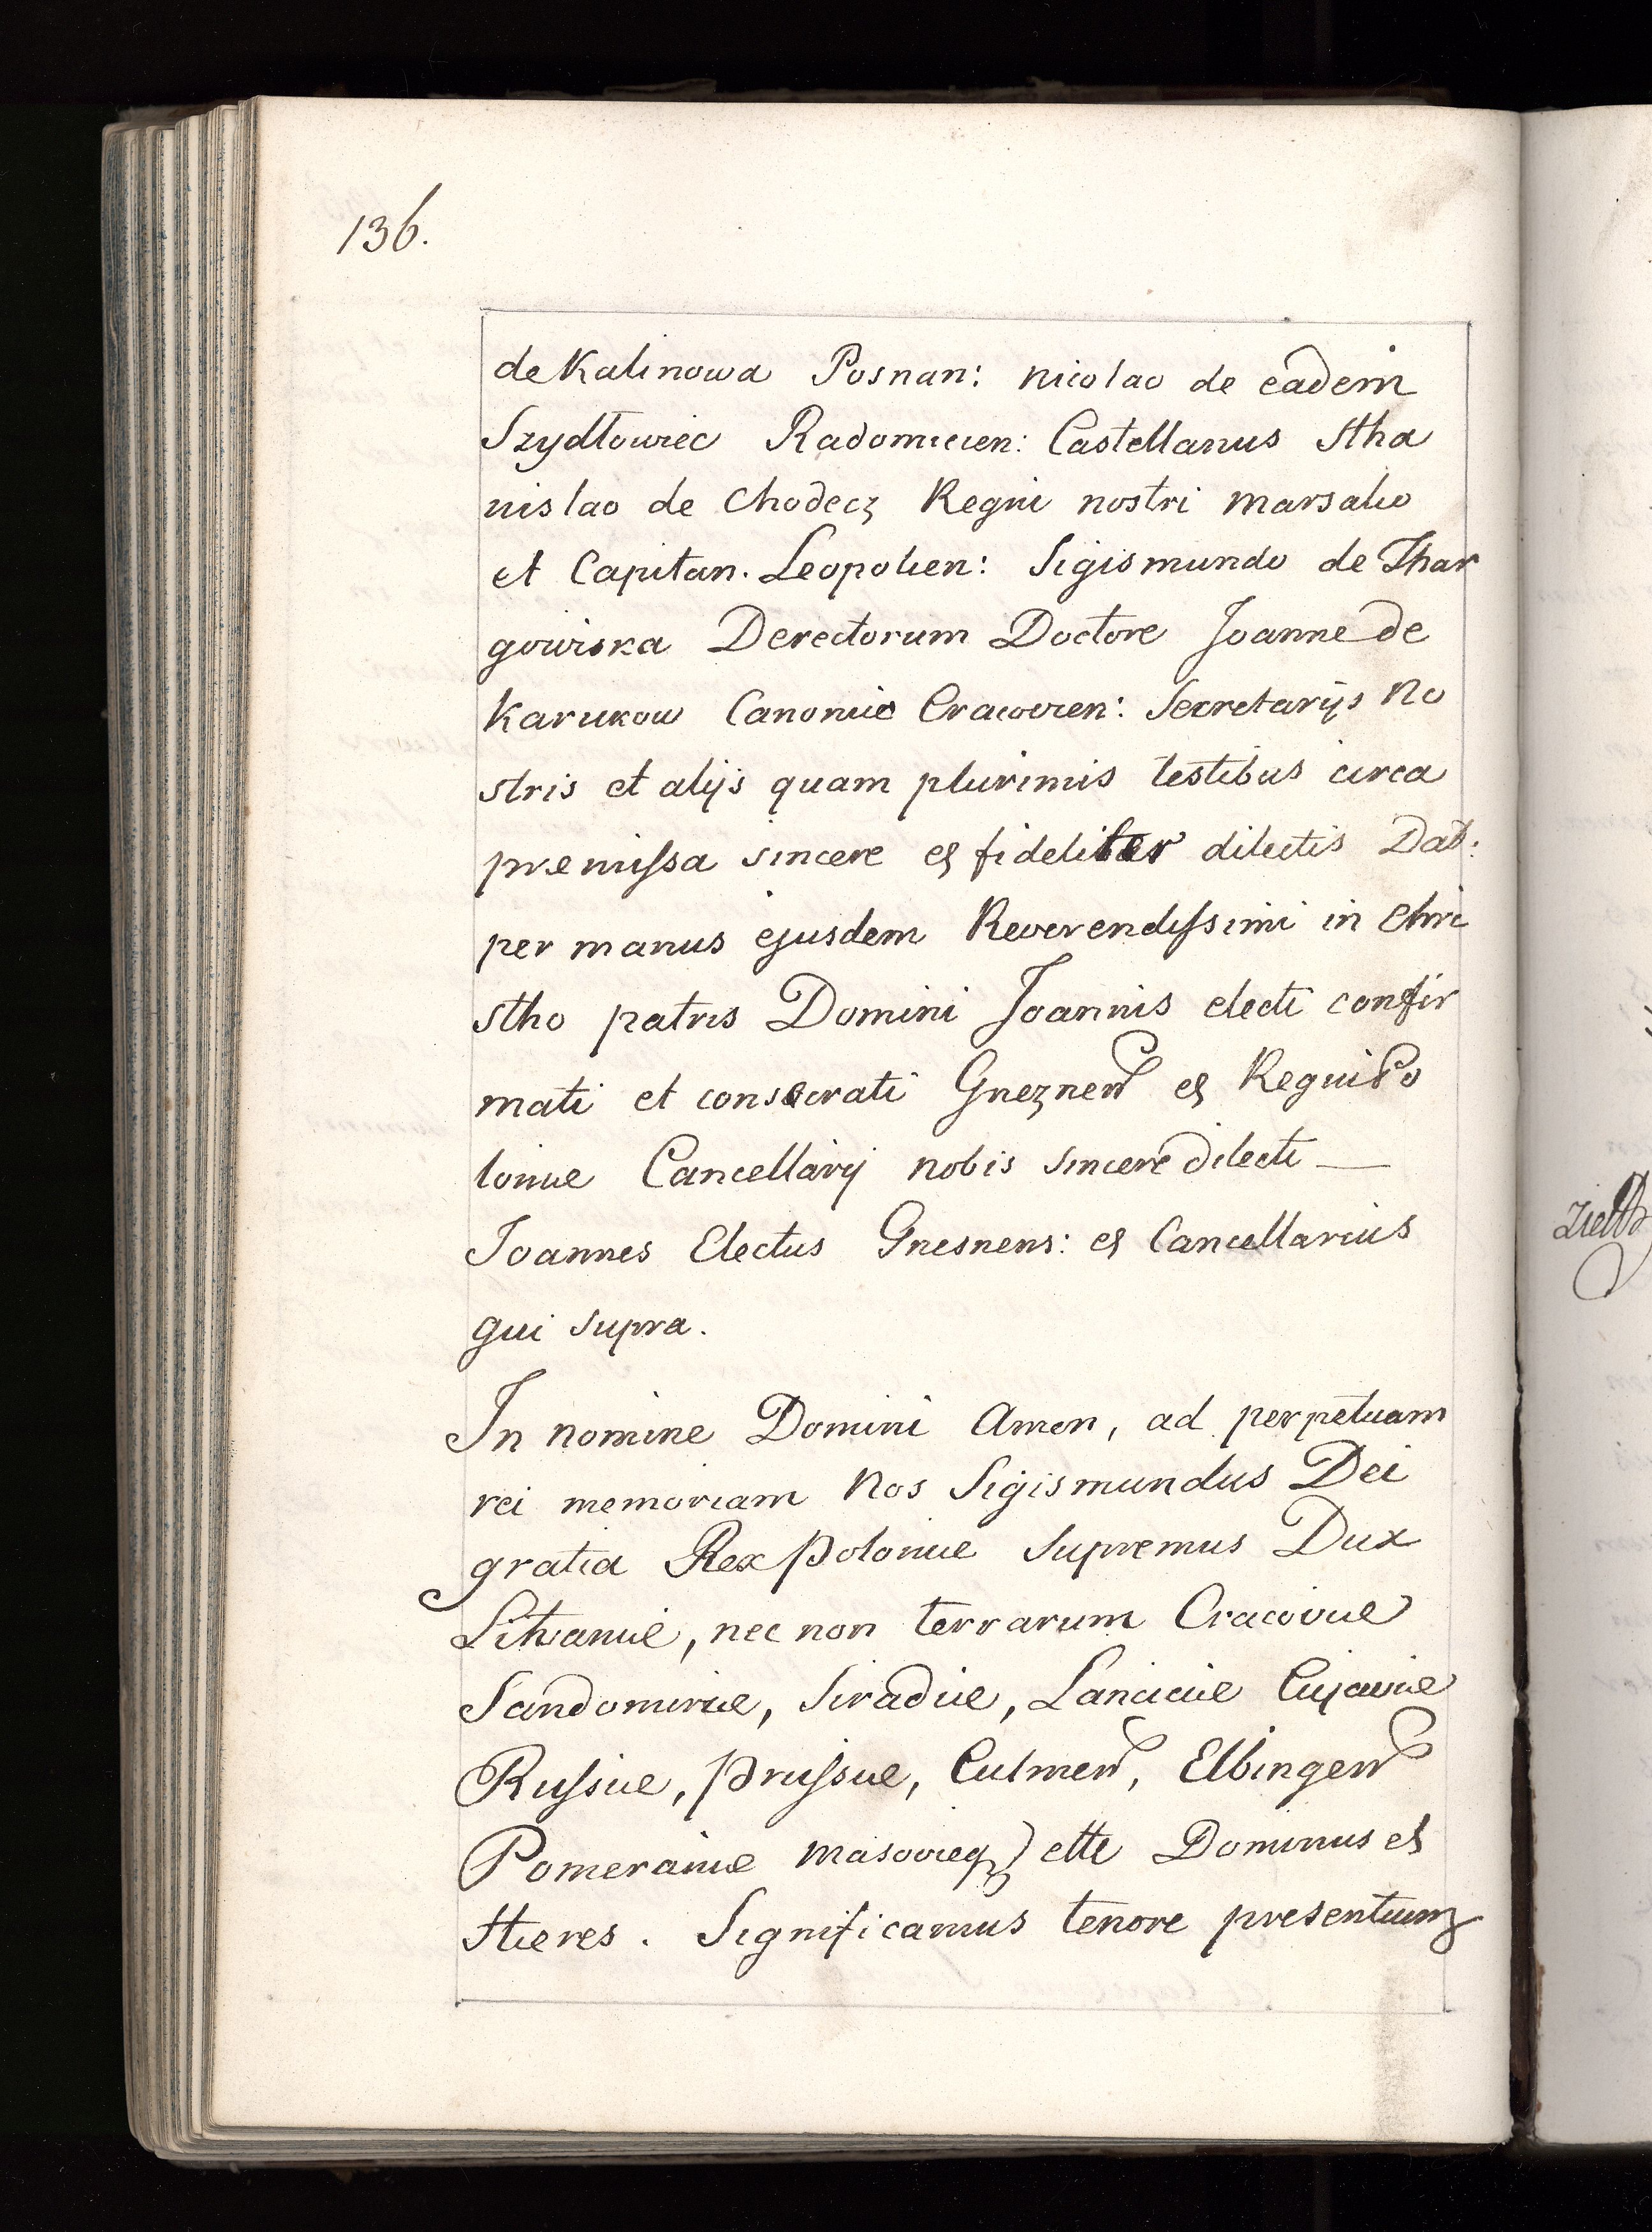 136.
de Kalinowa Posnan: Nicolao de eadem
Szydłowiec Radomicien: Castellanus Stha
nislao de Chodecz Regni nostri Marsalco
et Capitan. Leopolien: Sigismundo de Thar
gowiska Derectorum Doctore Joanne de
Karnkow Canonico Cracovien: Secretarijs No
stris et alijs quam plurimis testibus circa
premissa sincere et fideliter dilectis Dat:
per manus ejusdem Reverendissimi in Chri
stho patris Domini Joannis electi confir
mati et consecrati Gneznen et Regni Po
loniae Cancellarij nobis sincere dilecti —
Joannes Electus Gnesnens: et Cancellarius
qui supra.
In nomine Domini Amen, ad perpetuam
rei memoriam Nos Sigismundus Dei
gratia Rex Poloniae Supremus Dux
Lithvaniae, nec non terrarum Cracoviae
Sandomiriae, Siradiae, Lanciciae Cujaviae
Russiae, Prussiae, Culmen, Elbingen
Pomeraniae Masovieq; ette Dominus et
Heres. Significamus tenore presentium